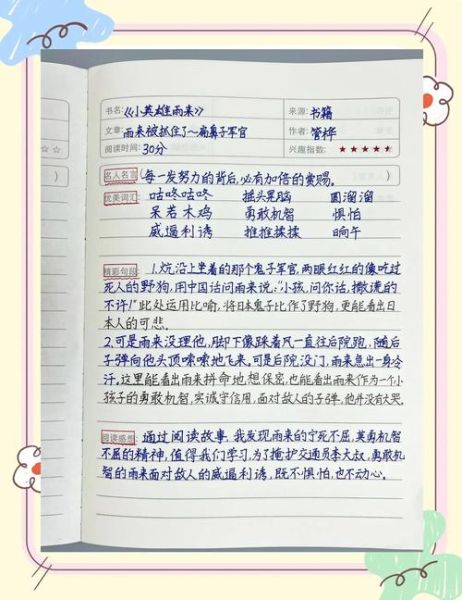 书名:《小英雄雨来》 来源:书籍
文章:雨来被抓住了~扁鼻子军官 作者:管桦
阅读时间:30分 兴趣指数:★★★★★
名人名言(每一发努力的背后,必有加倍的赏赐。
优美词汇:咕咚咕咚 摇头晃脑 圆溜溜
呆若木鸡 勇敢机智 惧怕
威逼利诱 推推搡搡 晌午
精彩句段 1.炕沿上坐着的那个鬼子军官,两眼红红的像吃过
死人的野狗,用中国话问雨来说:"小孩,问你话,撒谎的
不许!"此处运用比喻,将日本鬼子比作了野狗,更能看出日
本人的可悲。
2.可是雨来没理他,脚下像踩着风一直往后院跑,随后
子弹向他头顶嗖嗖地飞来。可是后院没门,雨来急出一身冷
汗。这里能看出雨来拼命地想保密,也能看出雨来作为一个小
孩子的勇敢机智,实诚守信用,面对敌人的子弹,他并没有大哭。
阅读感想:通过阅读故事,我发现雨来的宁死不屈,英勇机智
不屈的精神,值得我们学习,为了掩护交通员李大叔,勇敢机
智的雨来面对敌人的威逼利诱,既不惧怕,也不动心。